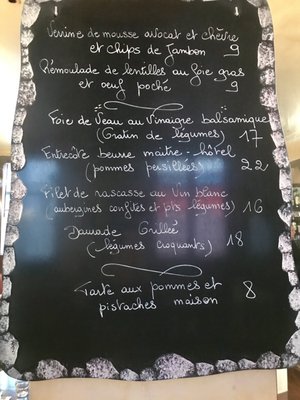 Verrine de mousse avocat et chèvre
et chips de Jambon 9
Rémoulade de lentilles au foie gras
et oeuf poché 9
Foie de Veau au Vinaigre balsamique
(Gratin de légumes) 17
Entrecôte beurre maître-hôtel
(pommes persillées) 22
Filet de rascasse au Vin blanc
(aubergines confites et pts légumes) 16
Daurade Grillée
(légumes croquants) 18
Tarte aux pommes et
pistaches maison 8